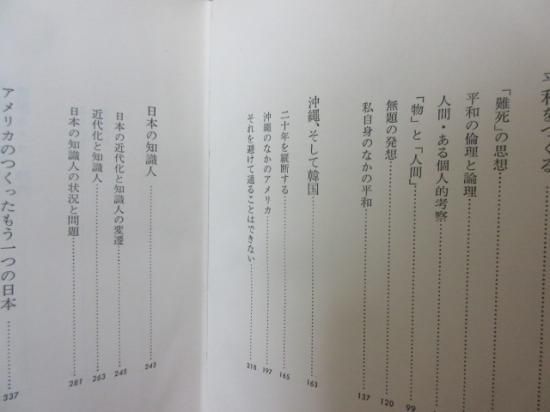 平和をつくる
「難死」の思想
平和の倫理と論理
人間・ある個人的考察……99
「物」と「人間」……120
無題の発想……137
私自身のなかの平和
沖縄、そして韓国……163
二十年を縦断する……165
沖縄のなかのアメリカ……197
それを避けて通ることはできない……218
日本の知識人……243
日本の近代化と知識人の変遷……245
近代化と知識人……263
日本の知識人の状況と問題……281
アメリカのつくったもう一つの日本……337